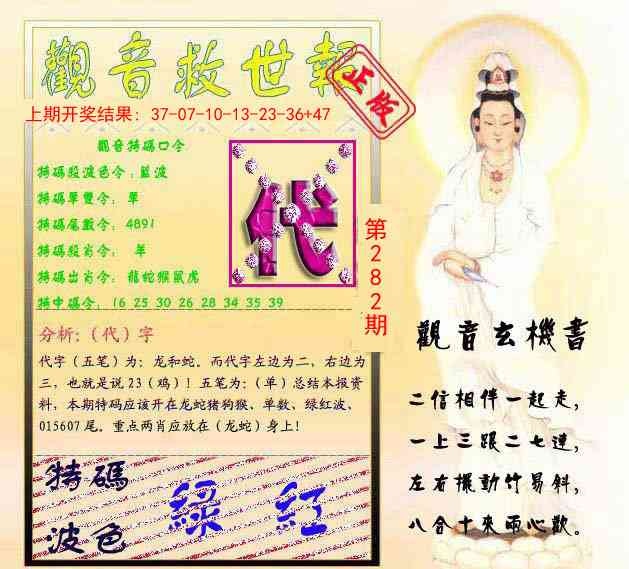 觀音救世報
正版
上期开奖结果：37-07-10-13-23-36+47
觀音特碼口令
特碼段波色令：藍波
特碼單雙令：單
特碼尾數令：4891
特碼段肖令：單
特碼出肖令：龍蛇猴鼠虎
特中碼令：16 25 30 26 28 34 35 39
代
第282期
分析:（代）字
代字（五笔）为：龙和蛇。而代字左边为二，右边为
三，也就是说 23（鸡）！五笔为：（单）总结本报资
料，本期特码应该开在龙蛇猪狗猴、单数、绿红波、
015607 尾。重点两肖应放在（龙蛇）身上！
特碼
波色
綠 紅
觀音玄機書
二信相伴一起走，
一上三跟二七連，
左右擺動竹易斜，
八合十來兩心歡。